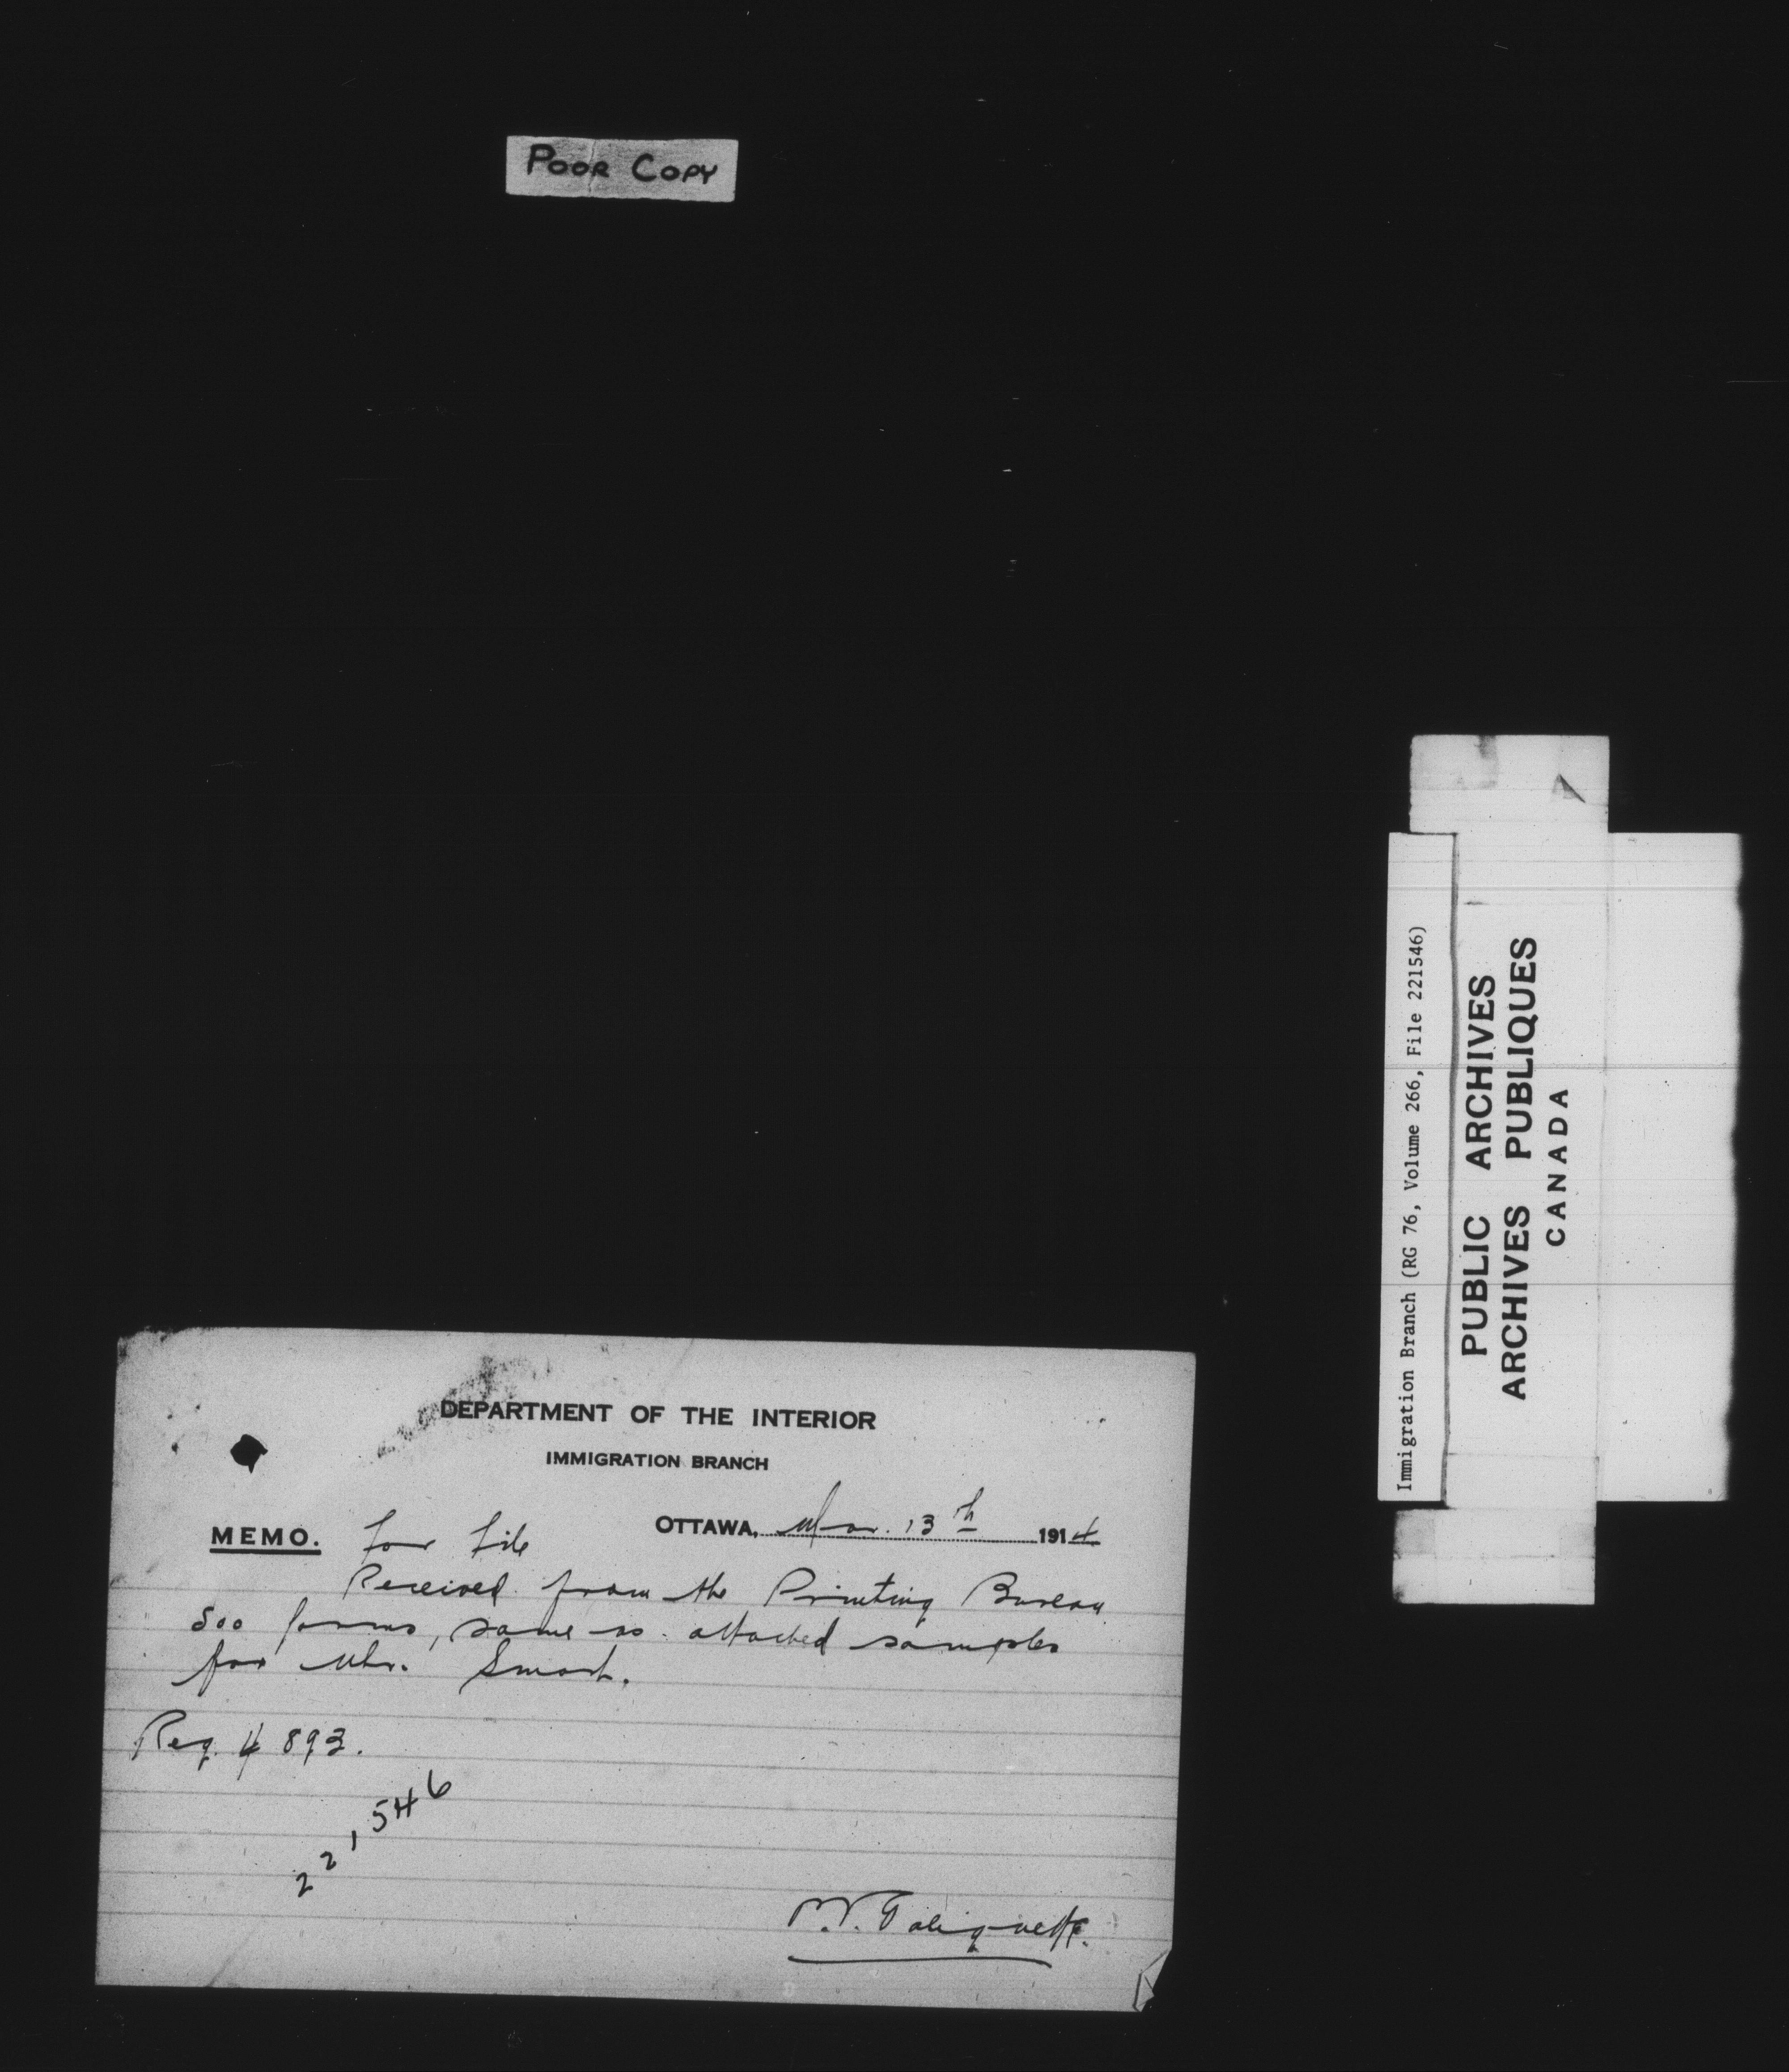 POOR COPY
DEPARTMENT OF THE INTERIOR
IMMIGRATION BRANCH
OTTAWA, Mar. 13th 1914
MEMO. for file
Received from the Printing Bureau
500 forms, same as attached samples
for Mr. Smart.
Req. # 893.
221,546
Taliquette.
Immigration Branch (RG 76, Volume 266, File 221546)
PUBLIC ARCHIVES
ARCHIVES PUBLIQUES
CANADA